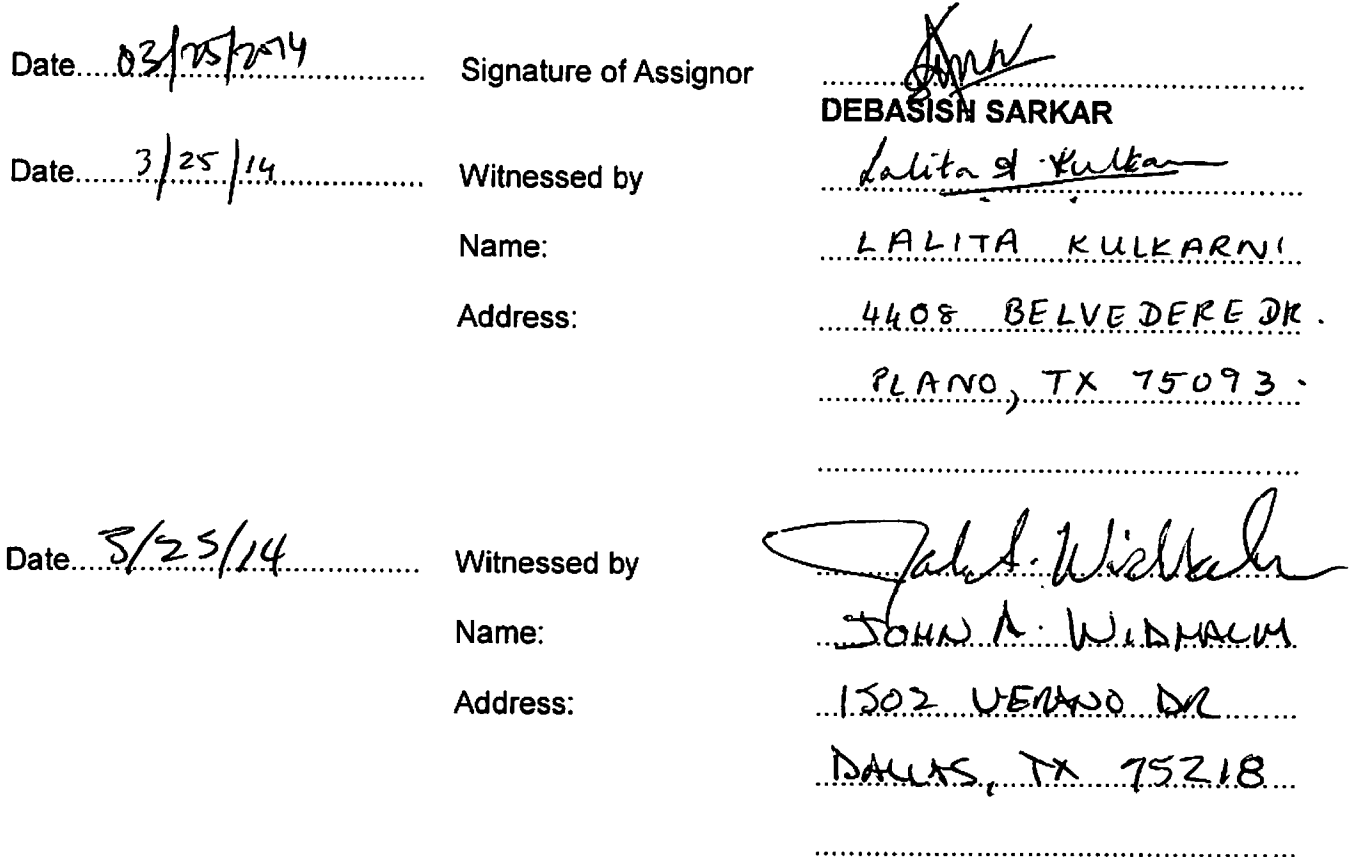 Date.....03/25/2014.............. Signature of Assignor
DEBASISH SARKAR
Date.......3/25/14................ Witnessed by Lalita A Kulkarni
Name: LALITA KULKARNI
Address: 4408 BELVEDERE DR.
PLANO, TX 75093.
Date...3/25/14................ Witnessed by John A. Widhalm
Name: JOHN A. WIDHALM
Address: 1502 VERANO DR
DALLAS, TX 75218